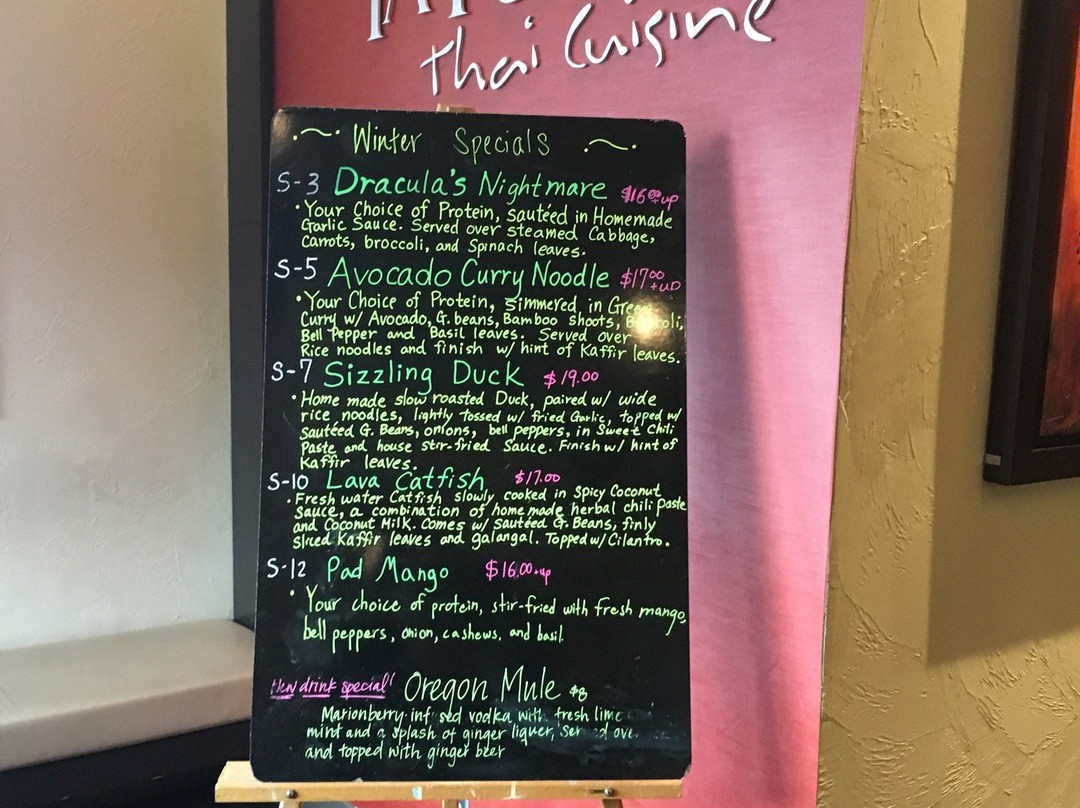 Thai Cuisine
Winter Specials
S-3 Dracula's Nightmare $16.00+up
• Your Choice of Protein, sautéed in Homemade
Garlic Sauce. Served over steamed Cabbage,
Carrots, broccoli, and Spinach leaves.
S-5 Avocado Curry Noodle $17.00+up
• Your Choice of Protein, Simmered in Green
Curry w/ Avocado, G. beans, Bamboo shoots, Broccoli,
Bell Pepper and Basil leaves. Served over
Rice noodles and finish w/ hint of Kaffir leaves.
S-7 Sizzling Duck $19.00
• Home made slow roasted Duck, paired w/ wide
rice noodles, lightly tossed w/ fried Garlic, topped w/
Sautéed G. Beans, onions, bell peppers, in Sweet Chili
Paste and house stir-fried Sauce. Finish w/ hint of
Kaffir leaves.
S-10 Lava Catfish $17.00
• Fresh water Catfish slowly cooked in Spicy Coconut
Sauce, a combination of homemade herbal chili paste
and Coconut Milk. Comes w/ Sautéed G. Beans, finly
sliced Kaffir leaves and galangal. Topped w/ Cilantro.
S-12 Pad Mango $16.00+up
• Your choice of protein, stir-fried with fresh mango,
bell peppers, onion, cashews, and basil.
New drink special! Oregon Mule $8
Marionberry inf sed vodka with fresh lime
mint and a splash of ginger liquer, ser ed ove
and topped with ginger beer